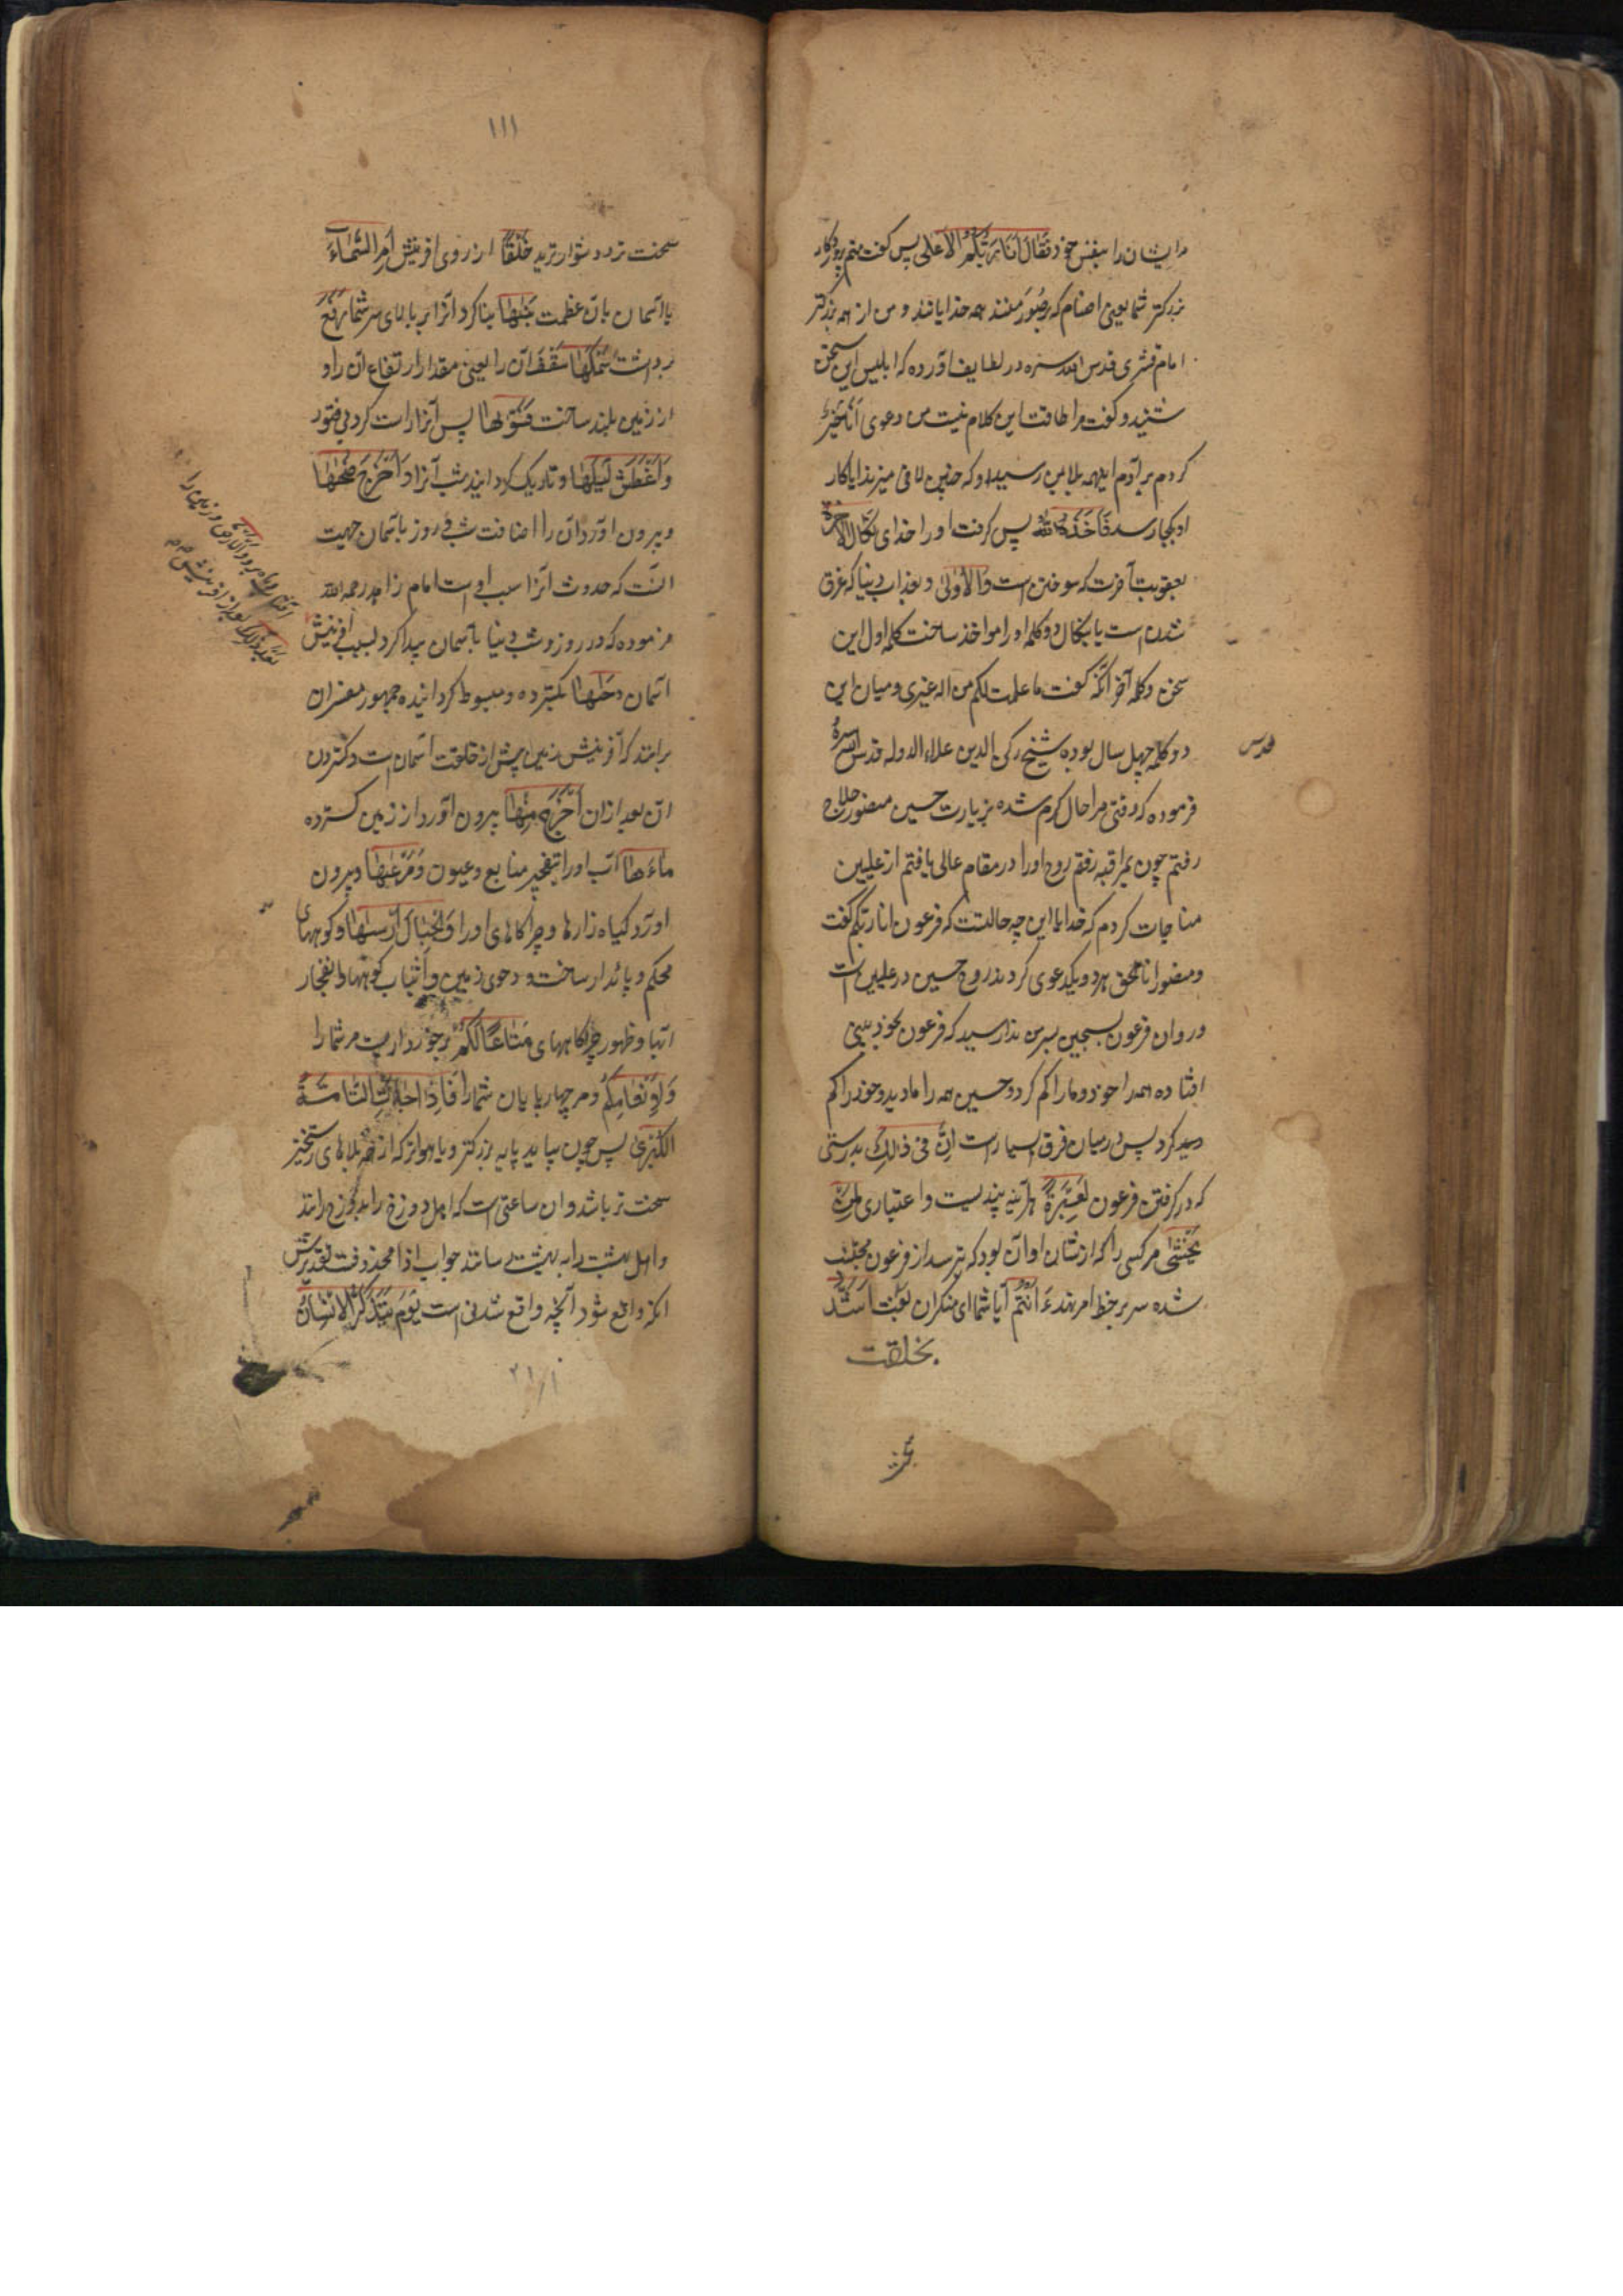 مرایشان را بنفس خود فَقَالَ اَنَا رَبُّكُمُ الْاَعْلٰى پس گفت منم پروردکار
بزرکتر شما یعنی اصنام که بر صُوَر منند همه خدایانند و من از همه بزرکتر
امام قشیری قدس الله سره در لطایف آورده که ابلیس این سخن
شنید و گفت مرا طاقت این کلام نیست من دعوی اَنَا خَيْرٌ
کردم بر آدم اینهمه بلا بمن رسید او که چنین لافی میزند آیا کار
او بکجا رسد فَاَخَذَهُ اللّٰهُ پس گرفت او را خدای نَكَالَ الْاٰخِرَةِ
بعقوبت آخرت که سوختن است وَالْاُوْلٰى و بعذاب دنیا که غرق
شدن است یا بنکال دو کلمه او را مواخذ ساخت کلمه اول این
سخن و کلمه آخر آنکه گفت ما علمت لکم من اله غیری و میان این
دو کلمه چهل سال بوده شیخ رکن الدین علاء الدوله قدس سره
قدس
فرموده که وقتی مرا حال گرم شده بزیارت حسین منصور حلاج
رفتم چون بمراقبه رفتم روح او را در مقام عالی یافتم از علیین
مناجات کردم که خدایا این چه حالتست که فرعون انا ربکم گفت
و منصور انا الحق هر دو یک دعوی کردند روح حسین در علیین است
و روان فرعون بسجین بسر من ندا رسید که فرعون بخود بینی
افتاده همه را خود دید و ما را کم کرد و حسین همه را ما دید و خود را کم
کرد پس در میان فرق بسیار است اِنَّ فِىْ ذٰلِكَ بدرستی
که در گرفتن فرعون لَعِبْرَةً هر آینه پندیست و اعتباری لِّمَنْ
يَّخْشٰى مر کسی را که از شان او آن بود که بترسد از فرعون
شده سر بر خط امر نهد ءَاَنْتُمْ آیا شما ای منکران بعث اَشَدُّ
بخلقت
١١١
سخت ترد و دشوارترید خَلْقًا از روی آفرینش اَمِ السَّمَآءُ
یا آسمان بان عظمت بَنٰهَا بنا کرد آنرا بر بالای سر شما رَفَعَ
برداشت سَمْكَهَا سقف آن را یعنی مقدار ارتفاع آن را و
از زمین بلند ساخت فَسَوّٰىهَا پس آنرا راست کرد بی فتور
وَاَغْطَشَ لَيْلَهَا و تاریک گردانید شب آنرا وَاَخْرَجَ ضُحٰهَا
و بیرون آورد آن را اضافت شب و روز باسمان جهت
آنست که حدوث آنرا سبب اوست امام زاهد رحمه الله
فرموده که در روز و شب دنیا باسمان پیدا کرد بسبب آفرینش
آسمان دَحٰهَا بکسترده و مبسوط گردانیده جمهور مفسران
برانند که آفرینش زمین پیش از خلقت آسمان است و کستردن
آن بعد از ان اَخْرَجَ مِنْهَا بیرون آورد از زمین کسترده
مَآءَهَا آب او را بتفجیر منابع و عیون وَمَرْعٰهَا و بیرون
آورد کیاه زارها و چراکاهای او را وَالْجِبَالَ اَرْسٰهَا و کوههای
محکم و پایدار ساخت و دحوی زمین و اثبات کوهها و انفجار
آبها و ظهور چراکاههای مَتَاعًا لَّكُمْ برخورداریست مر شما را
وَلِاَنْعَامِكُمْ و مر چهارپایان شما را فَاِذَا جَآءَتِ الطَّآمَّةُ
الْكُبْرٰى پس چون بیاید بزرکتر که از همه بلاهای رستخیز
سخت تر باشد و ان ساعتی است که اهل دوزخ را بدوزخ رانند
و اهل بهشت را به بهشت رسانند جواب اذا محذوفست تقدیرش
آنکه واقع شود آنچه واقع شدنی است يَوْمَ يَتَذَكَّرُ الْاِنْسَانُ